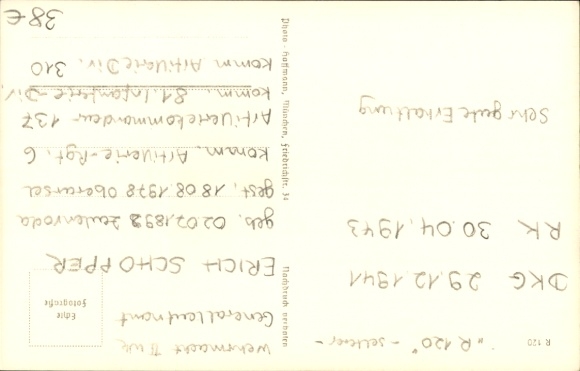 R 120
"R 120" - seltener -
DKG 29.12.1941
RK 30.04.1943
Sehr gute Erhaltung
Photo-Hoffmann, München, Friedrichstr. 34
Nachdruck verboten
Echte
Fotografie
Wehrmacht II WK
Generalleutnant
ERICH SCHOPPER
geb. 02.07.1892 Zeulenroda
gest. 18.08.1978 Oberursel
Komm. Artillerie-Rgt. 6
Artilleriekommandeur 137
Komm. 81. Infanterie-Div
Komm. Artillerie Div. 310
38€